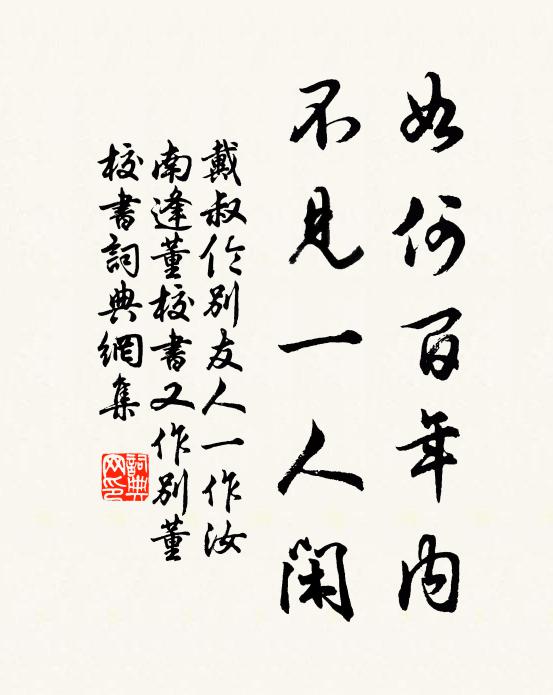 如何百年内
不見一人閑
戴叔伦别友人一作汝
南逢董校書又作别董
校書詞典網集
詞典网印